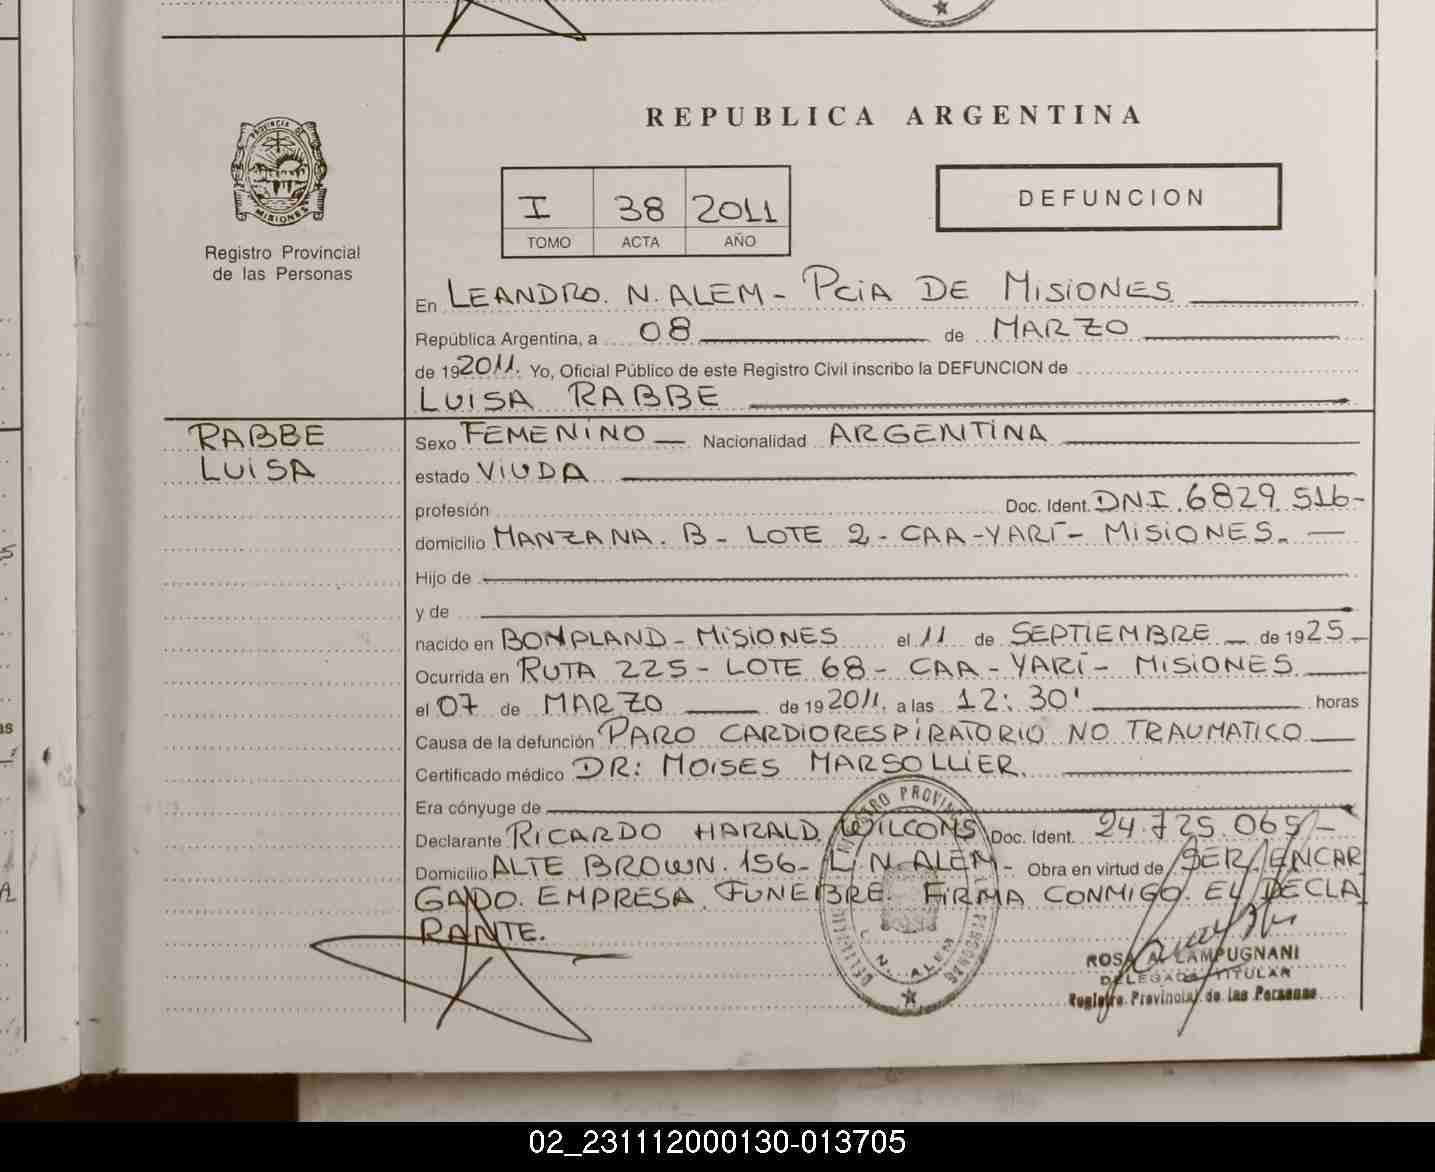 REPUBLICA ARGENTINA
PROVINCIA DE
MISIONES
Registro Provincial
de las Personas
I 38 2011
TOMO ACTA AÑO
DEFUNCION
En LEANDRO. N. ALEM - PciA DE MISIONES
República Argentina, a 08 de MARZO
de 192011. Yo, Oficial Público de este Registro Civil inscribo la DEFUNCION de
LUISA RABBE
RABBE
LUISA
Sexo FEMENINO Nacionalidad ARGENTINA
estado VIUDA
profesión Doc. Ident. DNI. 6829.516-
domicilio MANZANA. B - LOTE 2 - CAA-YARÍ - MISIONES.
Hijo de
y de
nacido en BONPLAND - MISIONES el 11 de SEPTIEMBRE de 1925
Ocurrida en RUTA 225 - LOTE 68 - CAA-YARÍ - MISIONES
el 07 de MARZO de 192011. a las 12:30' horas
Causa de la defunción PARO CARDIORESPIRATORIO NO TRAUMATICO
Certificado médico DR: MOISES MARSOLLIER
Era cónyuge de
Declarante RICARDO HARALD WILCOMS Doc. Ident. 24.725.065-
Domicilio ALTE BROWN. 156- L. N. ALEM - Obra en virtud de SER ENCAR
GADO. EMPRESA. FUNEBRE. FIRMA CONMIGO. EL DECLA
RANTE.
L. N. ALEM
ROSA A. LAMPUGNANI
DELEGADA TITULAR
Registro Provincial de las Personas
02_231112000130-013705